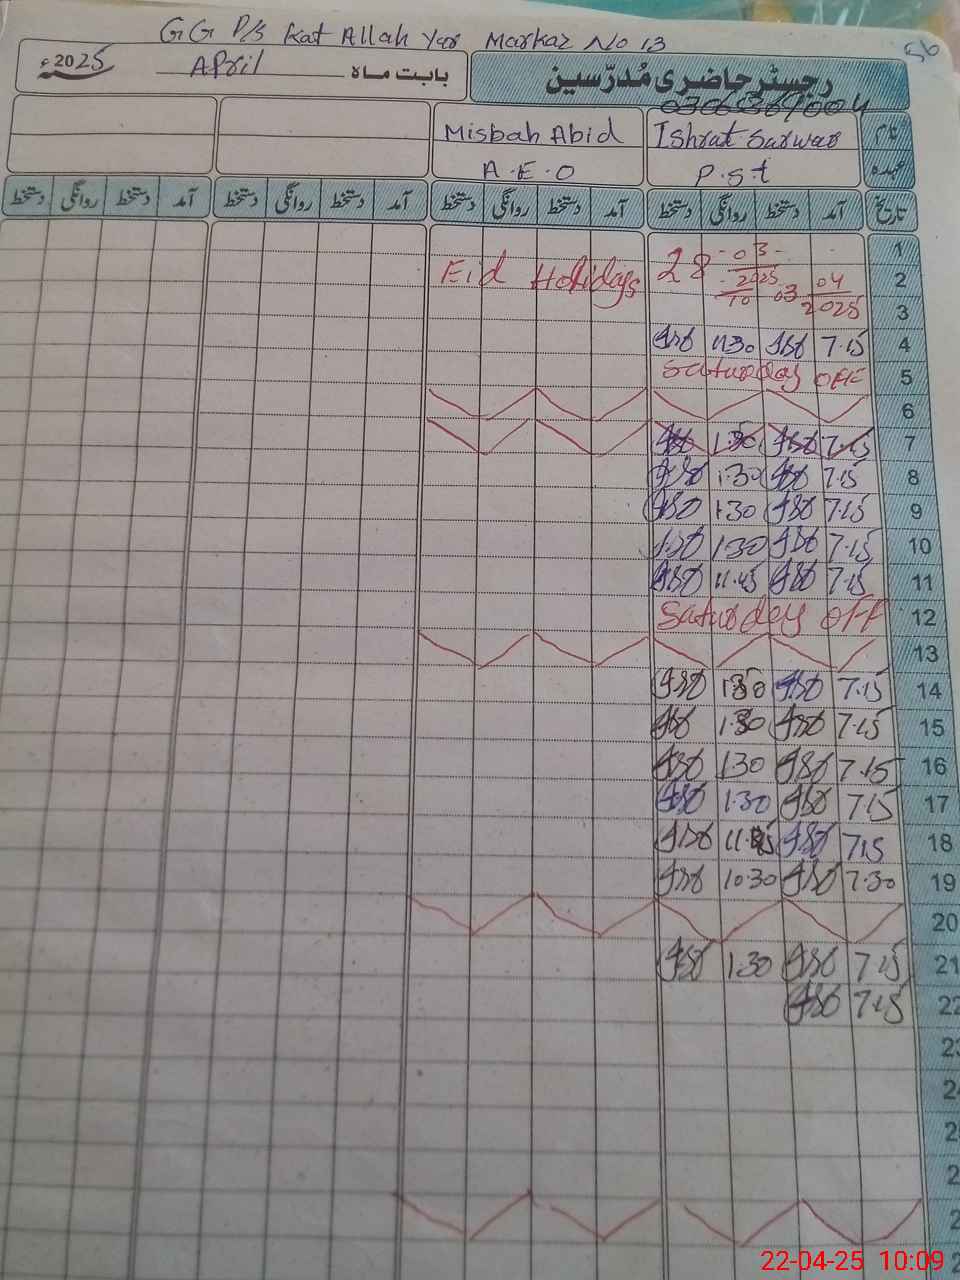 GG P/S Kat Allah Yar Markaz No 13
56
رجسٹر حاضری مُدرّسین
بابت ماہ April 2025ء
03065369004
نام Ishrat Sarwar Misbah Abid
عہدہ P.S.t A.E.O
تاریخ آمد دستخط روانگی دستخط آمد دستخط روانگی دستخط آمد دستخط روانگی دستخط آمد دستخط روانگی دستخط
1
2 Eid Holidays 28-03-2025 to 03-04-2025
3
4 7.15 11:30
5 Saturday OFF
6
7 7.15 1.30
8 7.15 1.30
9 7.15 1.30
10 7.15 1.30
11 7.15 11.45
12 Saturday OFF
13
14 7.15 1:30
15 7.15 1.30
16 7.15 1.30
17 7.15 1.30
18 7.15 11.45
19 7.30 10.30
20
21 7.15 1.30
22 7.15
23
22-04-25 10:09